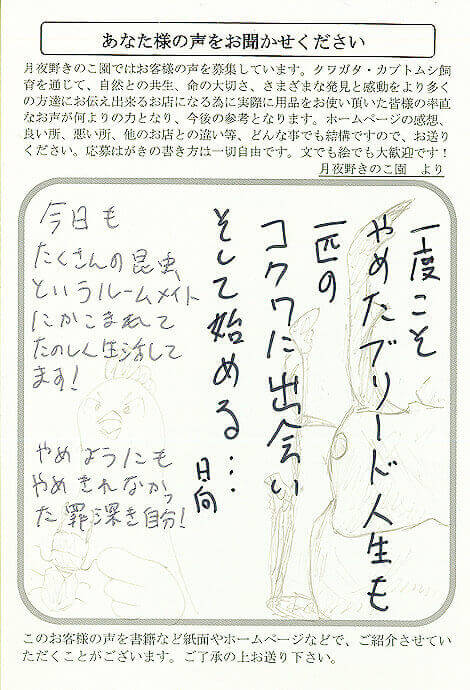 あなた様の声をお聞かせください
月夜野きのこ園ではお客様の声を募集しています。クワガタ・カブトムシ飼
育を通じて、自然との共生、命の大切さ、さまざまな発見と感動をより多く
の方達にお伝え出来るお店になる為に実際に用品をお使い頂いた皆様の率直
なお声が何よりの力となり、今後の参考となります。ホームページの感想、
良い所、悪い所、他のお店との違い等、どんな事でも結構ですので、お送り
ください。応募はがきの書き方は一切自由です。文でも絵でも大歓迎です！
月夜野きのこ園　より
一度こそ
やめたブリード人生も
一匹の
コクワに出会い
そして始める…
日向
今日も
たくさんの昆虫
というルームメイト
にかこまれて
たのしく生活して
ます！
やめようにも
やめきれなかっ
た罪深き自分！
このお客様の声を書籍など紙面やホームページなどで、ご紹介させてい
ただくことがございます。ご了承の上お送り下さい。